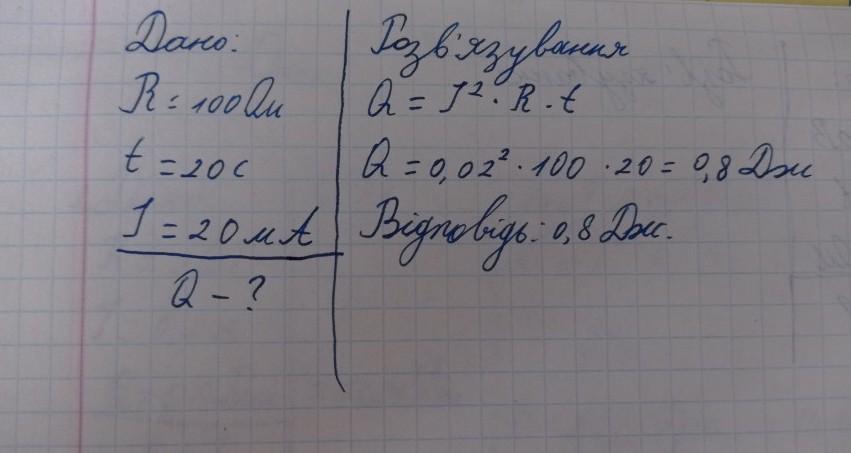 Дано:
R = 100 Ом
t = 20 с
I = 20 мА
Q - ?
Розв'язування
Q = I² · R · t
Q = 0,02² · 100 · 20 = 0,8 Дж
Відповідь: 0,8 Дж.